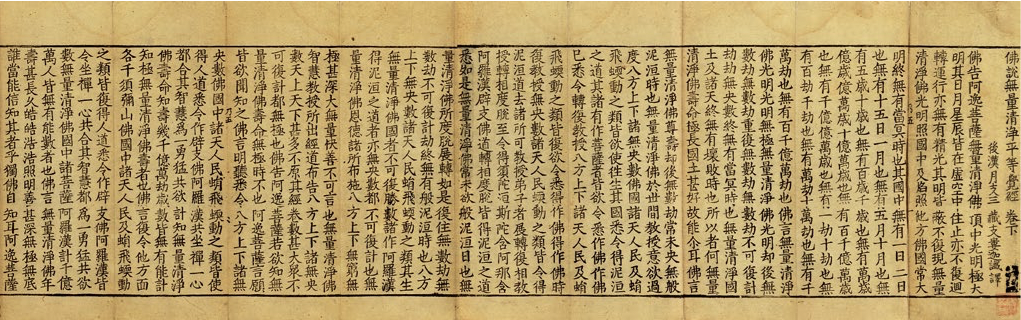 佛說無量清淨平等覺經 卷下
後漢月支三藏支婁迦讖 譯
佛告阿逸菩薩無量清淨佛頂中光明極大
明其日月星辰皆在虛空中住止亦不復迴
轉運行亦無有精光其明皆蔽不復現無量
清淨佛光明照國中及焰照他方佛國常大
明終無有當冥時也其國中無有一日二日
也無有十五日一月也無有五月十月也無
有五歲十歲也無有百歲千歲也無有萬歲
億歲億萬歲十億萬歲也無有百千億萬歲
也無有千億億萬歲也無有一劫十劫也無
有百劫千劫也無有萬劫十萬劫也無有千
萬劫也無有百千億萬劫也佛言無量清淨
佛光明光明無極無量清淨佛光明却後無
數劫無數劫重復無數劫無數劫
劫劫無央數終無有當冥時也無量清淨佛國
土及諸天終無有壞敗時也所以者何無量
清淨佛壽命極長國土甚好故能爾耳佛言
無量清淨佛尊壽却後無數劫常未央無般
泥洹時也無量清淨佛於世間教授意欲過
度八方上下諸無央數佛國諸天人民及蜎
飛蠕動之類皆欲使往生其國悉令得泥洹
之道其諸有作菩薩者皆欲令悉作佛作佛
已悉令轉復教授八方上下諸天人民及蜎
飛蠕動之類皆復欲令悉得作佛得作佛時
復教授無央數諸天人民蠕動之類皆令得
泥洹道去諸所可教授弟子者展轉復相教
授轉相度脫至令得須陀洹斯陀含阿那含
阿羅漢辟支佛道轉相度脫皆得泥洹之道
悉如是無量清淨佛常未欲般泥洹日也無
量清淨佛所度脫展轉如是復住劫無數劫無
數劫不可復計劫終無有般泥洹時也八方
上下無央數諸天人民蜎飛蠕動之類其生
無量清淨佛國者不可復勝數諸作阿羅漢
得泥洹之道者亦無央數都不可復計也無
量清淨佛恩德諸所布施八方上下無窮無
極甚深大無量快善不可言也無量清淨佛
智慧教授所出經道布告八方上下諸無央
數天上天下甚多不原其經卷數甚大衆不
可復計都無極也佛告阿逸菩薩若欲知無
量清淨佛壽命無極時不也阿逸菩薩言願
皆欲聞知之佛言明聽悉令八方上下諸無
央數佛國中諸天人民蜎飛蠕動之類皆使
得人道悉令作辟支佛阿羅漢共坐禪一心
都合其智慧為一勇猛共欲計知無量清淨
佛壽命知壽幾千億萬劫歲數皆無有能計
知極無量清淨佛壽者也佛言復令他方面
各千須彌山佛國中諸天人民及蜎飛蠕動
之類皆復得人道悉令作辟支佛阿羅漢皆
令坐禪一心共合其智慧都為一勇猛共欲
數無量清淨佛國中諸菩薩阿羅漢計千億
萬人皆無有能數者也佛言無量清淨佛年
壽甚長久皓皓浩浩照明善甚深無極無底
誰當能信知其者乎獨佛自知耳阿逸菩薩